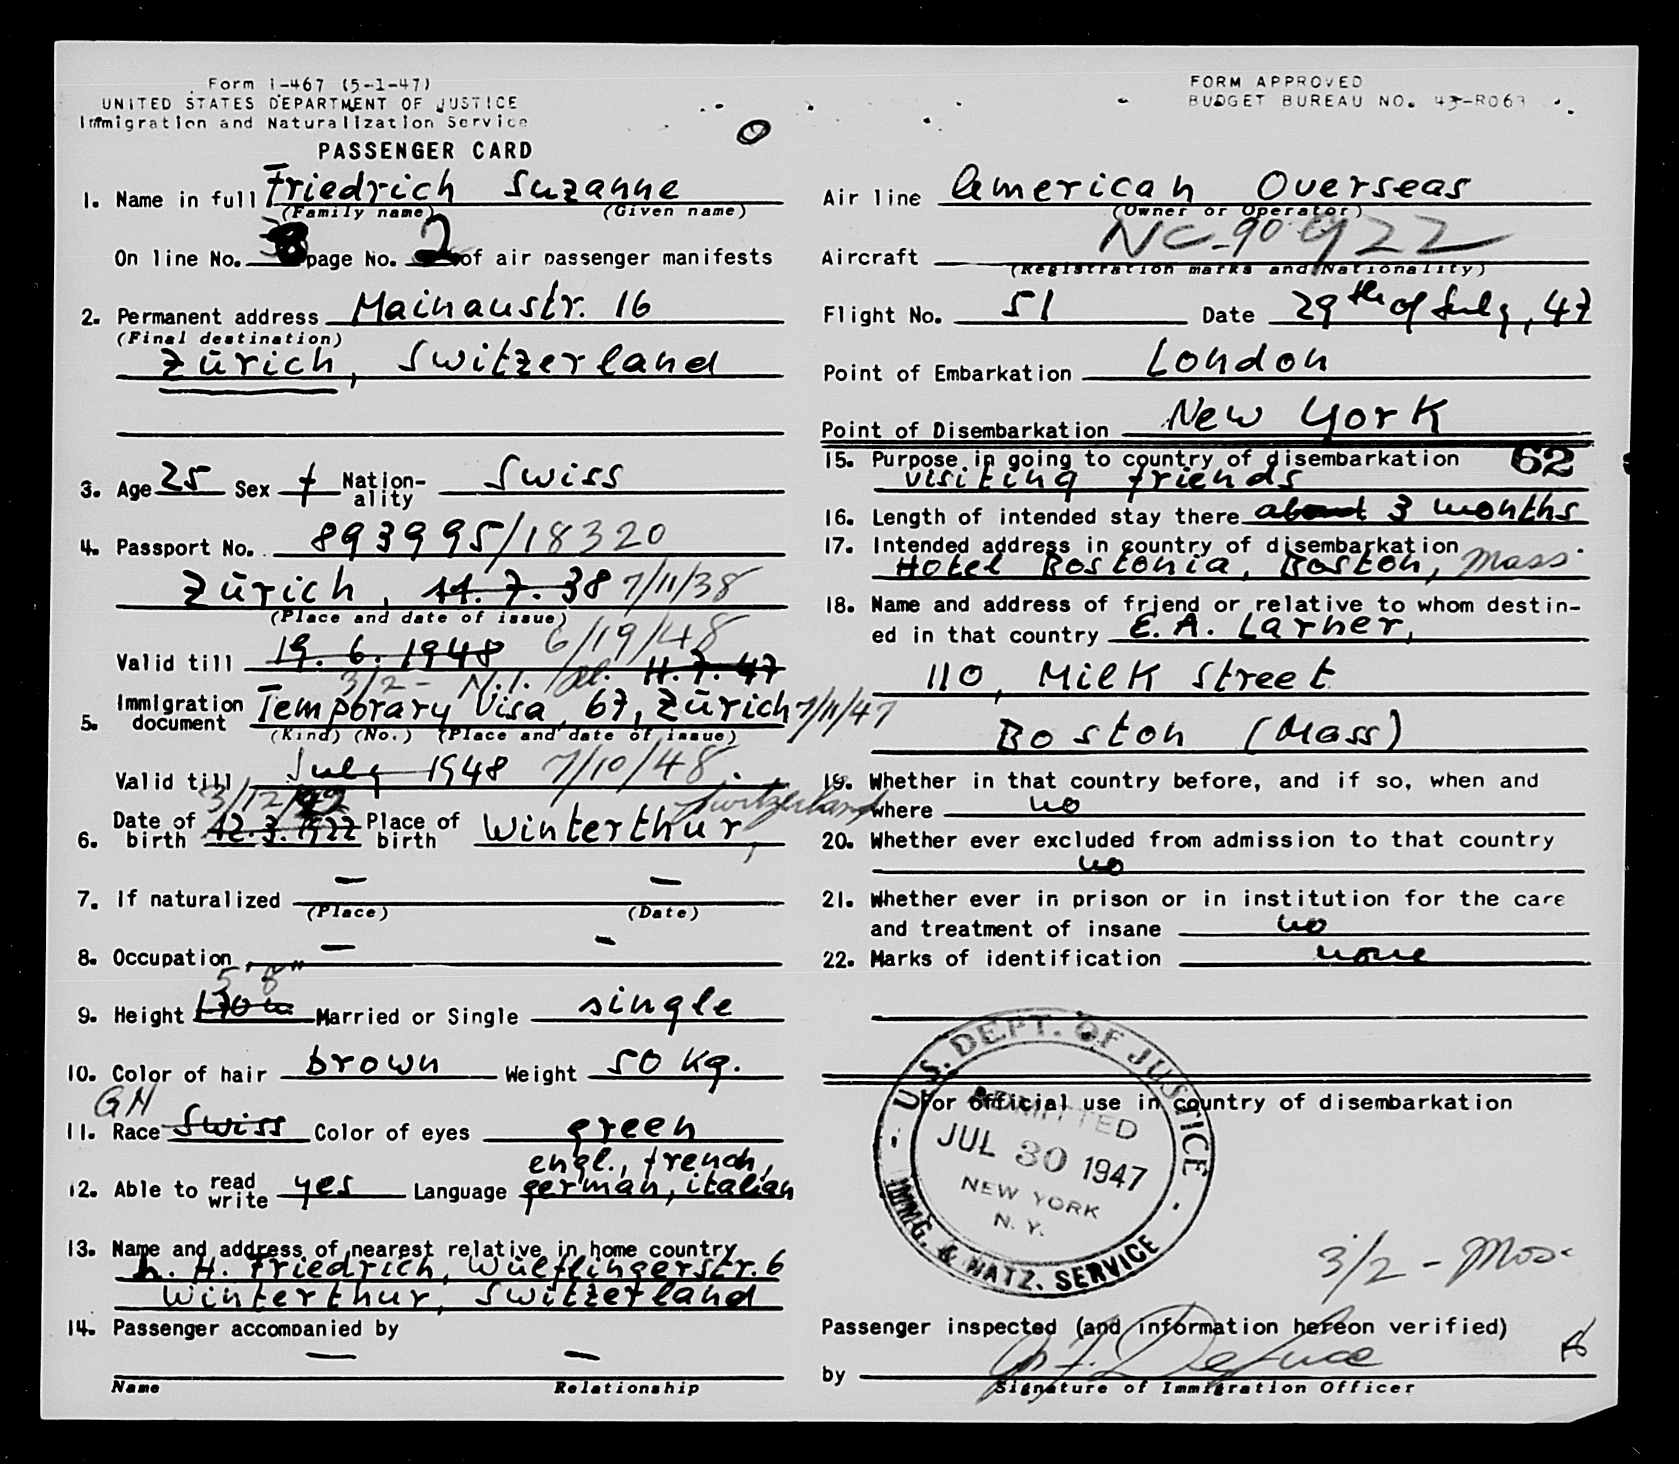 Form I-467 (5-1-47)
UNITED STATES DEPARTMENT OF JUSTICE
Immigration and Naturalization Service
PASSENGER CARD
1. Name in full Friedrich Suzanne
(Family name) (Given name)
On line No. page No. 2 of air passenger manifests
2. Permanent address Mainaustr. 16
(Final destination)
Zürich, Switzerland
3. Age 25 Sex f Nation-ality Swiss
4. Passport No. 893995/18320
Zürich, 11. 7. 38 7/11/38
(Place and date of issue)
6/19/48
Valid till 19. 6. 1948 11. 7. 47
3/2 -
5. Immigration document Temporary Visa, 67, Zürich 7/11/47
(Kind) (No.) (Place and date of issue)
Valid till July 1948 7/10/48
3/12/22 Switzerland
6. Date of birth 12. 3. 1922 Place of birth Winterthur,
7. If naturalized — —
(Place) (Date)
8. Occupation — —
5' 8"
9. Height 170 m Married or Single single
10. Color of hair brown Weight 50 kg.
GM
11. Race Swiss Color of eyes green
engl., french,
12. Able to read write yes Language german, italian
13. Name and address of nearest relative in home country
H. Friedrich, Wülflingerstr. 6
Winterthur, Switzerland
14. Passenger accompanied by
— —
Name Relationship
FORM APPROVED
BUDGET BUREAU NO. 43-R063
0
Air line American Overseas
(Owner or Operator)
Aircraft NC-90922
(Registration marks and Nationality)
Flight No. 51 Date 29th of July, 47
Point of Embarkation London
Point of Disembarkation New York
15. Purpose in going to country of disembarkation 62
visiting friends
16. Length of intended stay there about 3 months
17. Intended address in country of disembarkation
Hotel Bostonia, Boston, Mass.
18. Name and address of friend or relative to whom destin-
ed in that country E. A. Larner,
110, Milk Street
Boston (Mass)
19. Whether in that country before, and if so, when and
where no
20. Whether ever excluded from admission to that country
no
21. Whether ever in prison or in institution for the care
and treatment of insane no
22. Marks of identification none
For official use in country of disembarkation
U.S. DEPT. OF JUSTICE
ADMITTED
JUL 30 1947
NEW YORK
N. Y.
IMMG. & NATZ. SERVICE
3/2 - Mos.
Passenger inspected (and information hereon verified)
by
Signature of Immigration Officer